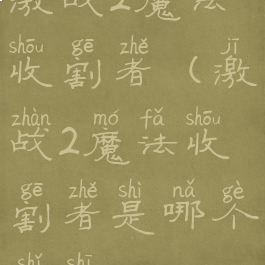 激战2魔法
shōu gē zhě jī
收割者（激
zhàn mó fǎ shōu
战2魔法收
gē zhě shì nǎ gè
割者是哪个